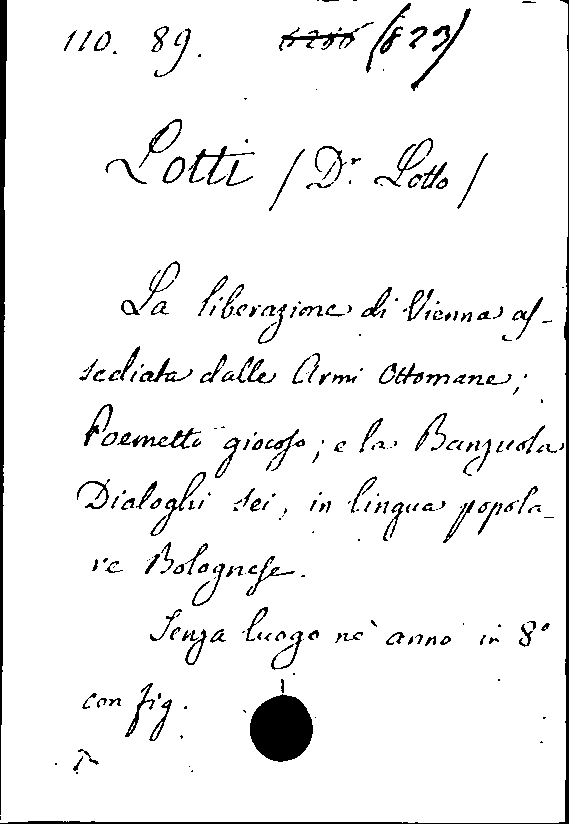 110. 89. (823)
Lotti / Dr. Lotto /
La liberazione di Vienna as-
sediata dalle Armi Ottomane;
Poemetto giocoso; e la Banzuola
Dialoghi sei, in lingua popola-
re Bolognese.
Senza luogo nè anno in 8°
con fig.